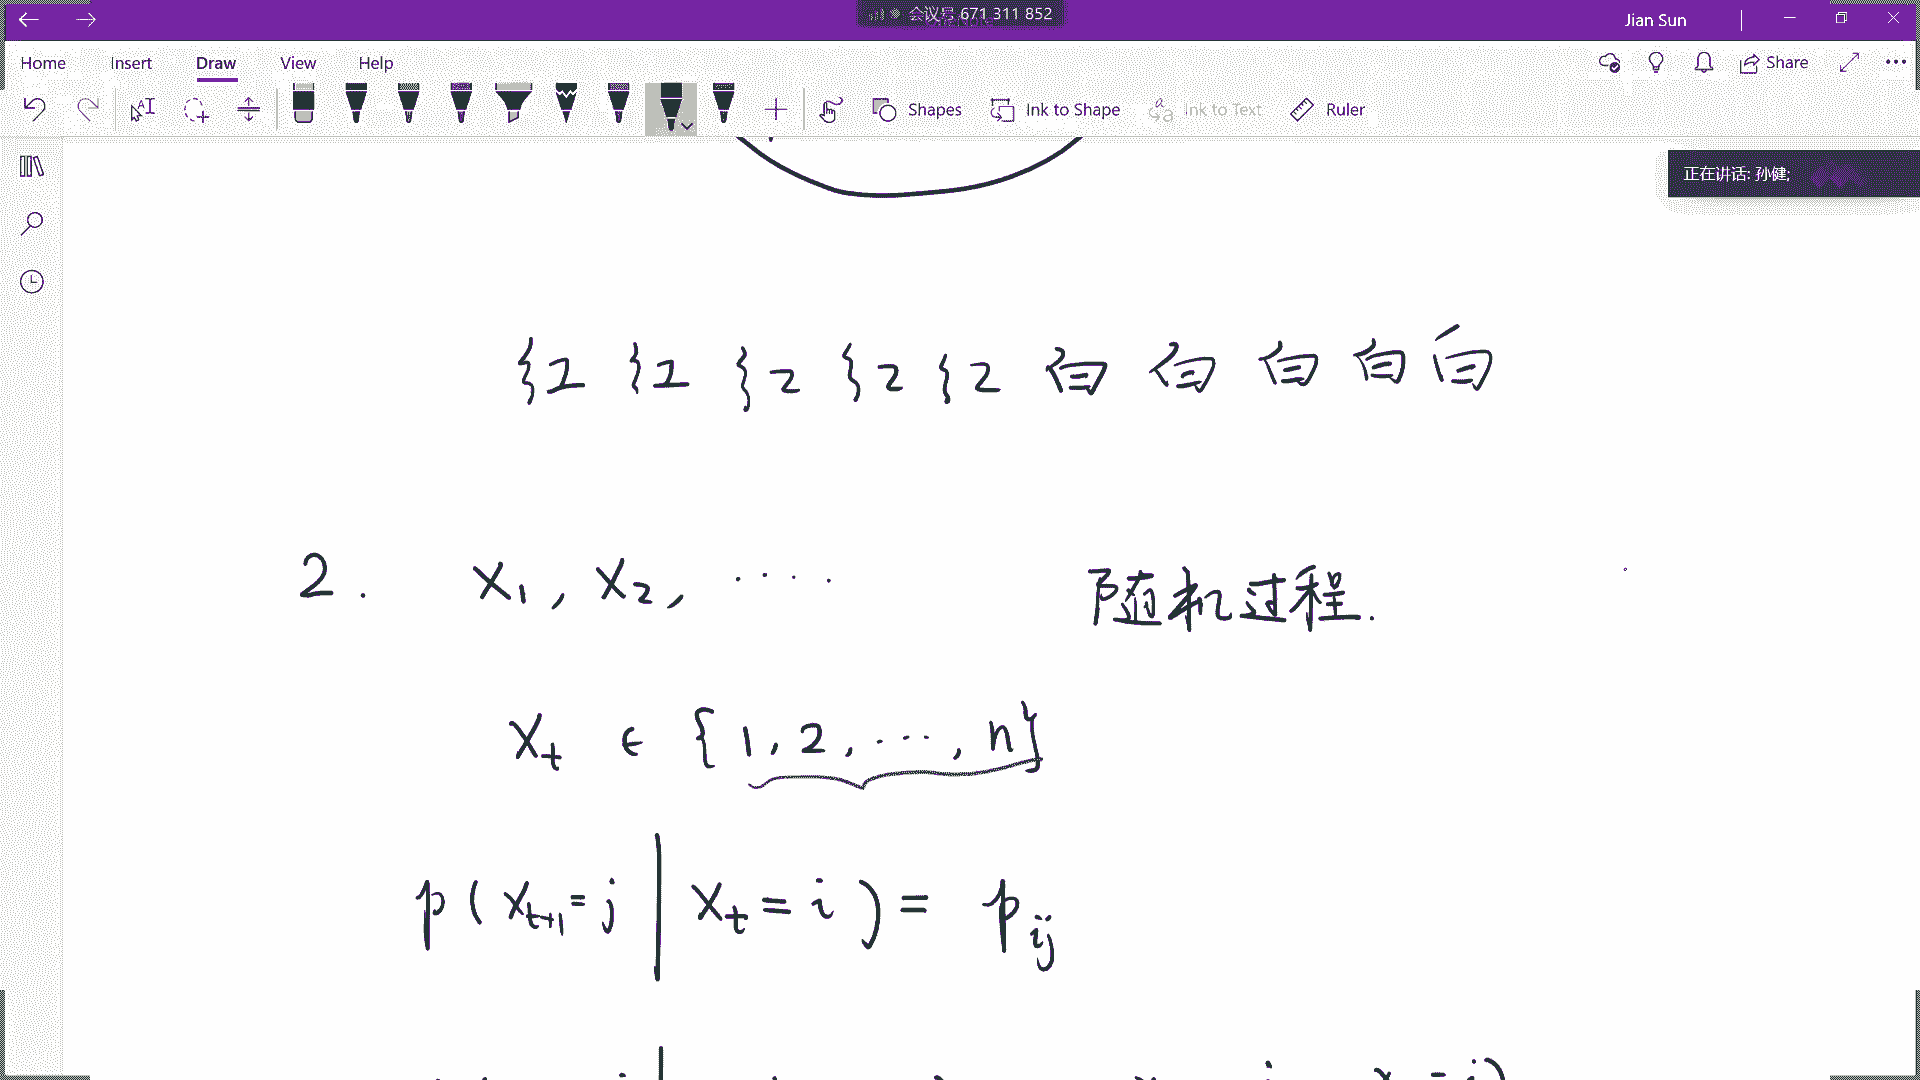 会议号 671 311 852
Jian Sun
Home Insert Draw View Help
Share
Shapes Ink to Shape Ink to Text Ruler
正在讲话: 孙健;
红 红 红 红 红 白 白 白 白 白
2. X₁, X₂, ····
随机过程.
Xₜ ∈ {1, 2, ···, n}
p(Xₜ₊₁=j | Xₜ=i) = pᵢⱼ